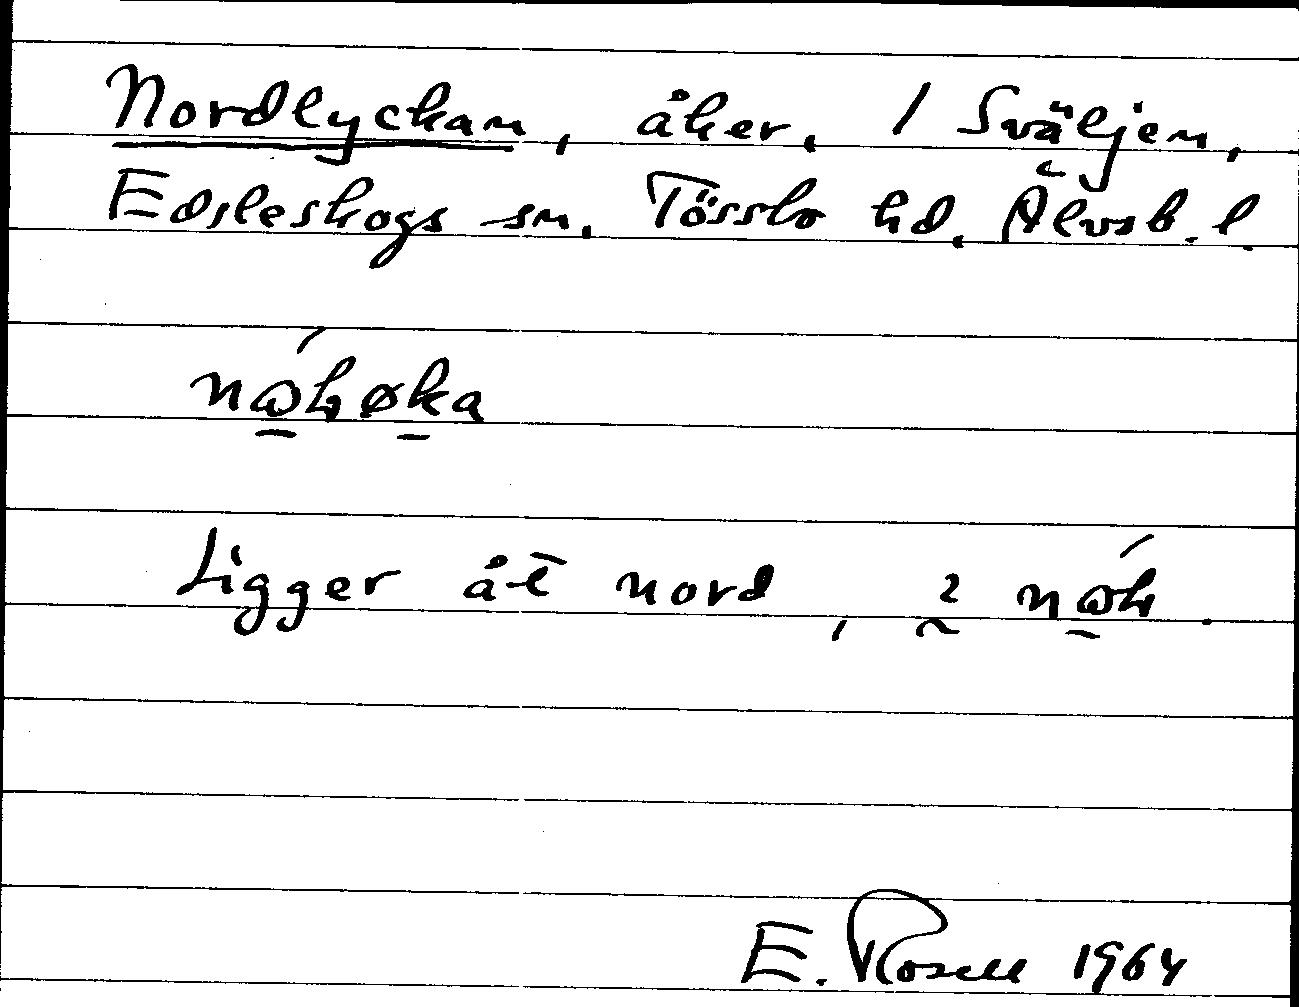 Nordlyckan, åker, 1 Sväljen,
Edsleskogs sn. Tössbo hd. Älvsb. l.
Ligger åt nord,
E. Rosell 1964